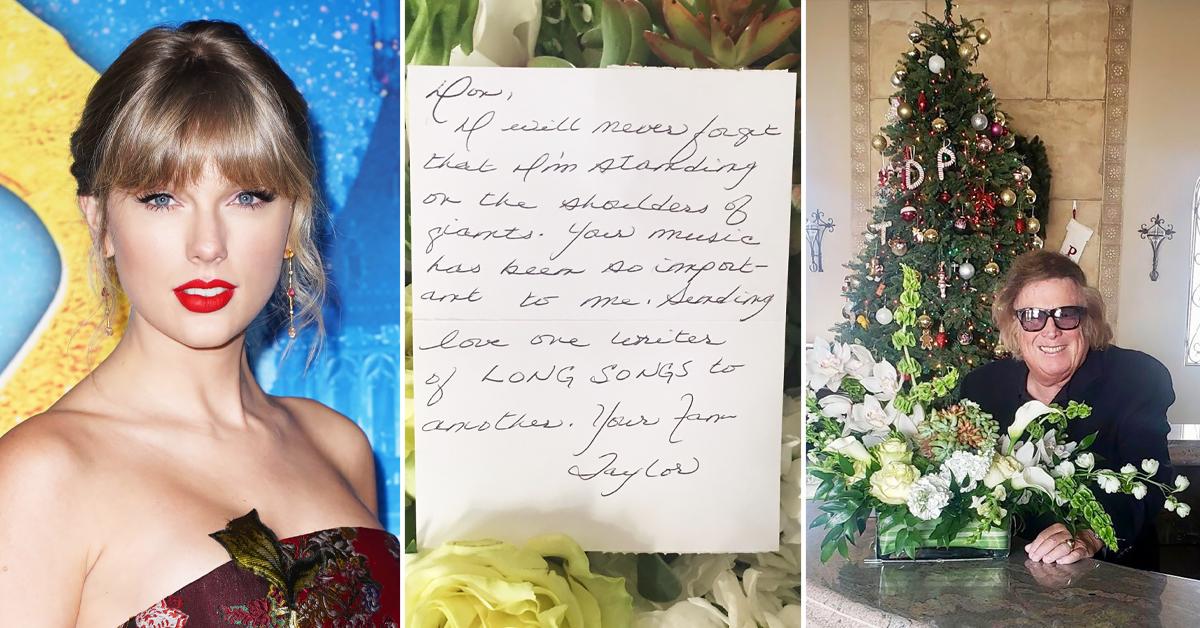 Don,
I will never forget
that I'm standing
on the shoulders of
giants. Your music
has been so import-
ant to me. Sending
love one writer
of LONG SONGS to
another. Your Fan
Taylor
DP
P